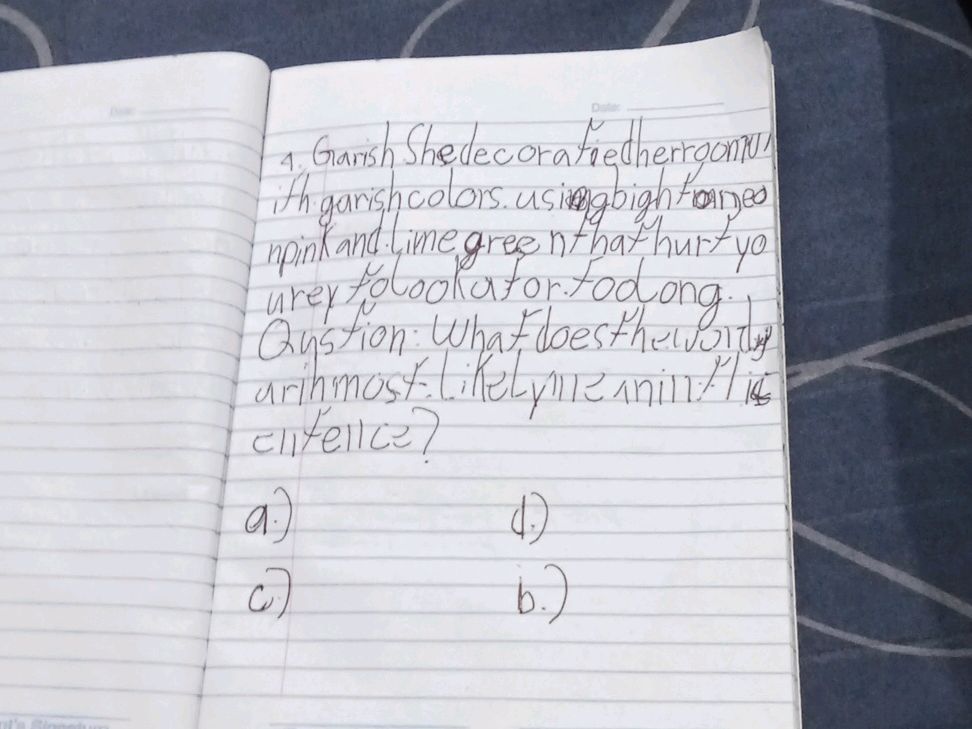 Date:
1. Garish She decoratied her room w
ith garish colors. using bight oranjeo
npink and lime green that hurt yo
urey to look at for. too Long.
Qustion: What does the word g
arihmost. Likely mean in this
entence?
a.) d.)
c.) b.)